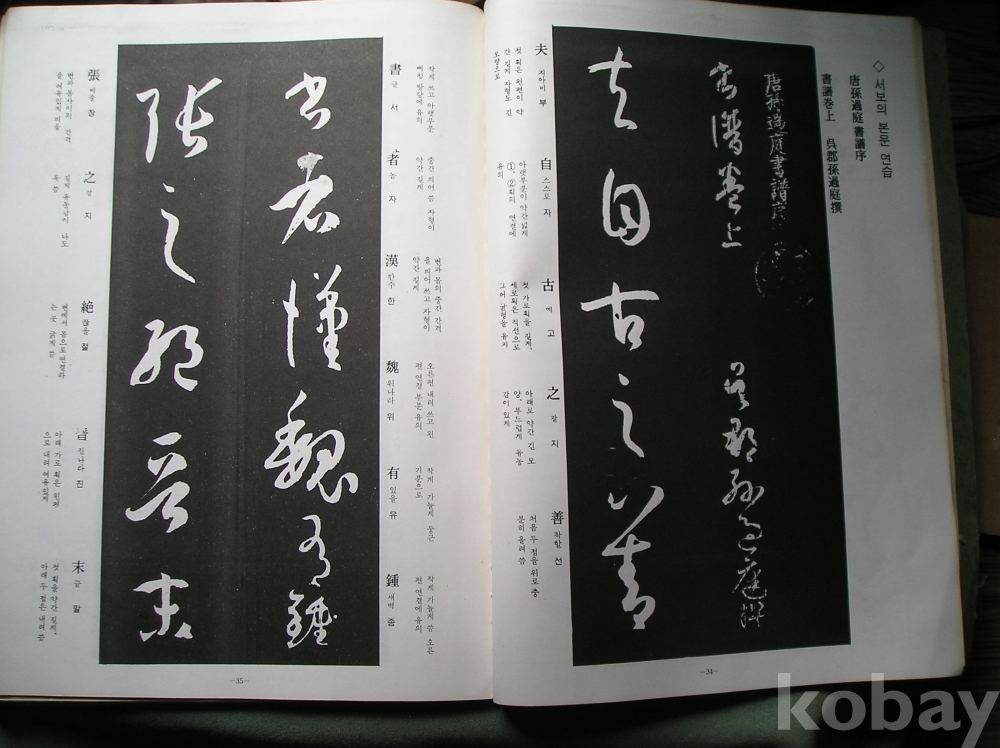 ◇ 서보의 본문 연습
唐孫過庭 書譜序
書譜卷上 吳郡孫過庭撰
唐孫過庭書譜序
書譜卷上 吳郡孫過庭撰
夫自古之善
夫 지아비 부
첫 획은 왼편이 약
간 길게 자형도 긴
모양으로
自 스스로 자
아랫부분이 약간 넓게
①, ②획의 연결에
유의
古 예 고
첫 가로획을 길게,
세로획은 직선으로
그어 균형을 유지
之 갈 지
아래로 약간 긴 모
양, 부드럽게 유능
감이 있게
善 착할 선
처음 두 점을 위로 충
분히 올려 씀
—34—
書 글 서
작게 쓰고 아랫부분
삐침 방향에 유의
者 놈 자
중간 띄어 씀 자형이
약간 길게
漢 한수 한
변과 몸의 중간 간격
을 띄어 쓰고 자형이
약간 길게
魏 위나라 위
오른편 내려 쓰고 왼
편 연결 부분 유의
有 있을 유
작게 가늘게 둥근
기분으로
鍾 새벽 종
작게 가늘게 씀 오른
편 연결에 유의
書者漢魏有鍾
張之絶晉末
張 베풀 장
변과 몸 사이의 간격
을 여유있게 띄움
之 갈 지
길게 유동남이 나도
록 씀
絶 끊을 절
변에서 몸으로 연결라
는 곳 굵게 씀
晋 진나라 진
아래 가로획은 왼편
으로 내려 여유있게
末 끝 말
첫 획을 약간 길게,
아래 두 점은 내려 씀
—35—
kobay